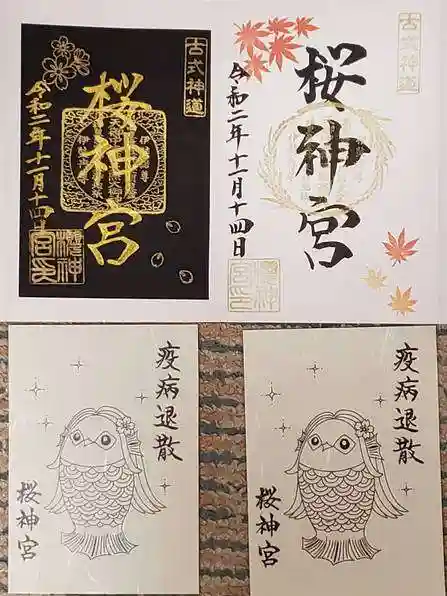 古式神道
桜神宮
令和二年十一月十四日
櫻神
宮印
古式神道
桜神宮
令和二年十一月十四日
櫻神
宮印
疫病退散
桜神宮
疫病退散
桜神宮